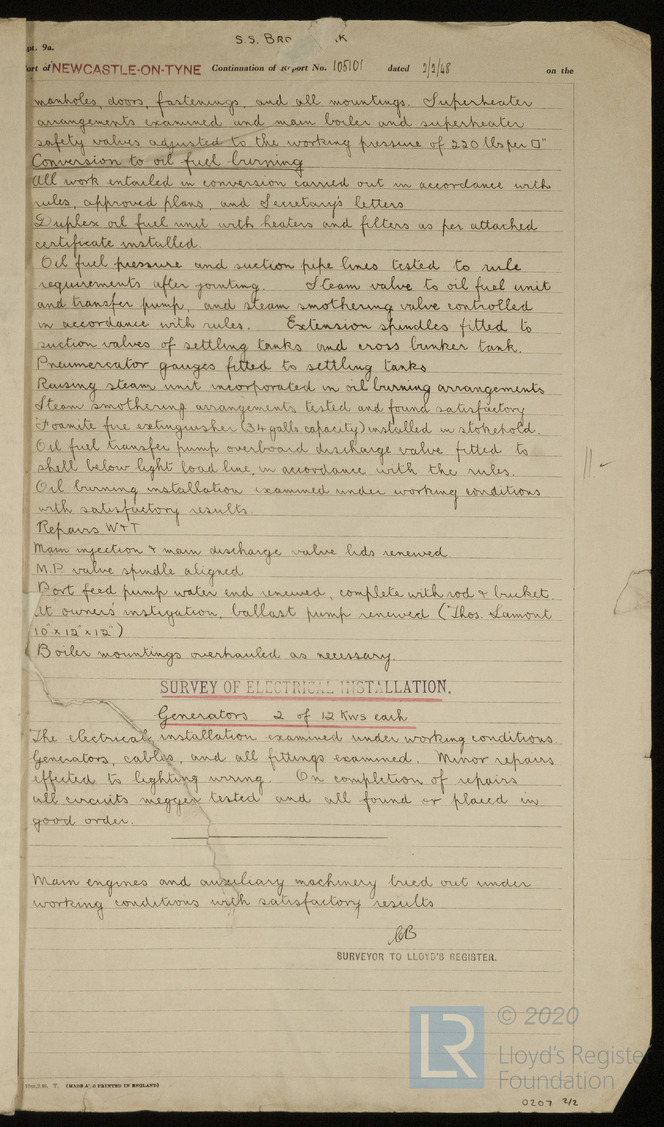 S.S. BRO K
pt. 9a.
ort of NEWCASTLE-ON-TYNE Continuation of Report No. 105101 dated 2/2/48 on the
manholes, doors, fastenings, and all mountings. Superheater
arrangements examined and main boiler and superheater
safety valves adjusted to the working pressure of 220 lbs per □"
Conversion to oil fuel burning
All work entailed in conversion carried out in accordance with
rules, approved plans, and Secretary's letters
Duplex oil fuel unit with heaters and filters as per attached
certificate installed.
Oil fuel pressure and suction pipe lines tested to rule
requirements after jointing. Steam valve to oil fuel unit
and transfer pump, and steam smothering valve controlled
in accordance with rules. Extension spindles fitted to
suction valves of settling tanks and cross bunker tank.
Pneumercator gauges fitted to settling tanks
Raising steam unit incorporated in oil burning arrangements
Steam smothering arrangements tested and found satisfactory
Foamite fire extinguisher (34 galls capacity) installed in stokehold.
Oil fuel transfer pump overboard discharge valve fitted to
shell below light load line, in accordance with the rules.
Oil burning installation examined under working conditions
with satisfactory results.
Repairs W&T
Main injection & main discharge valve lids renewed.
M.P. valve spindle aligned
Port feed pump water end renewed, complete with rod & bucket.
At owners' instigation, ballast pump renewed (Thos. Lamont
10" x 12" x 12")
Boiler mountings overhauled as necessary.
SURVEY OF ELECTRICAL INSTALLATION.
Generators 2 of 12 Kws each
The electrical installation examined under working conditions.
Generators, cables, and all fittings examined. Minor repairs
effected to lighting wiring. On completion of repairs
all circuits megger tested and all found or placed in
good order.
Main engines and auxiliary machinery tried out under
working conditions with satisfactory results
SURVEYOR TO LLOYD'S REGISTER.
T. (MADE AND PRINTED IN ENGLAND)
LR © 2020
Lloyd's Register
Foundation
0207 2/2